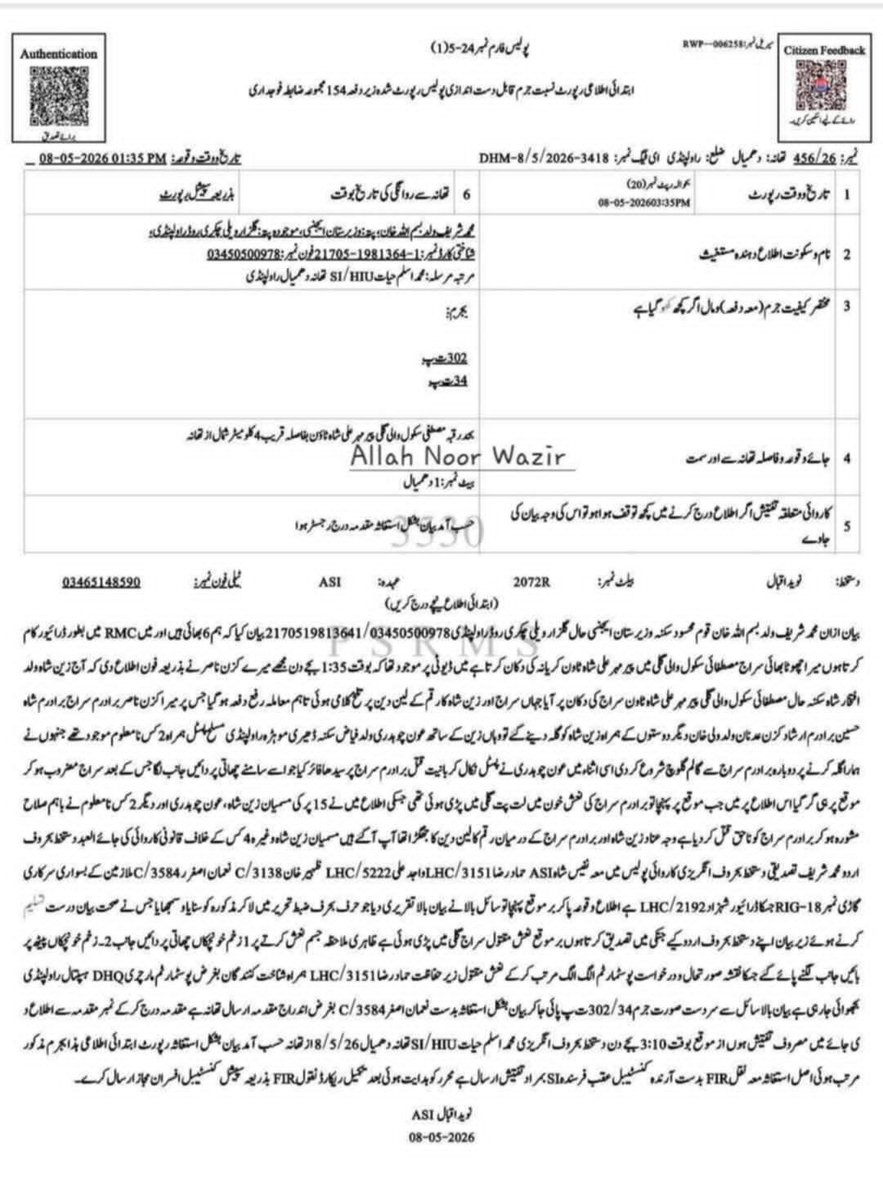 Authentication
برائے تصدیق
پولیس فارم نمبر 24-5(1)
سیریل نمبر: RWP---006258
Citizen Feedback
رائے کے لیے سکین کریں۔
ابتدائی اطلاعی رپورٹ نسبت جرم قابل دست اندازی پولیس رپورٹ شدہ زیر دفعہ 154 مجموعہ ضابطہ فوجداری
نمبر: 456/26 تھانہ: دھمیال ضلع: راولپنڈی ای ٹیگ نمبر: DHM-8/5/2026-3418 تاریخ و وقت وقوعہ: 08-05-2026 01:35 PM
1 تاریخ و وقت رپورٹ
بحوالہ رپٹ نمبر (20)
08-05-202603:35PM
6 تھانہ سے روانگی کی تاریخ و وقت
بذریعہ سپیشل رپورٹ
2 نام و سکونت اطلاع دہندہ مستغیث
محمد شریف ولد بسم اللہ خان، پتہ: وزیرستان ایجنسی، موجودہ پتہ: گلزار ویلی چکری روڈ راولپنڈی،
شناختی کارڈ نمبر: 21705-1981364-1 فون نمبر: 03450500978
مرتبہ مرسلہ: محمد اسلم حیات SI/HIU تھانہ دھمیال راولپنڈی
3 مختصر کیفیت جرم (معہ دفعہ) و مال اگر کچھ کھو گیا ہے
بجرم:
302 ت پ
34 ت پ
4 جائے وقوعہ و فاصلہ تھانہ سے اور سمت
بحد رقبہ مصطفی سکول والی گلی پیر مہر علی شاہ ٹاؤن بفاصلہ قریب 4 کلومیٹر شمال از تھانہ
Allah Noor Wazir
بیٹ نمبر: 1 دھمیال
5 کاروائی متعلقہ تفتیش اگر اطلاع درج کرنے میں کچھ توقف ہوا ہو تو اس کی وجہ بیان کی
جاوے
حسب آمد بیان بشکل استغاثہ مقدمہ درج رجسٹر ہوا
3330
دستخط: نوید اقبال بیلٹ نمبر: 2072R عہدہ: ASI ٹیلی فون نمبر: 03465148590
(ابتدائی اطلاع نیچے درج کریں)
PSRMS
بیان ازان محمد شریف ولد بسم اللہ خان قوم محسود سکنہ وزیرستان ایجنسی حال گلزار ویلی چکری روڈ راولپنڈی 2170519813641/03450500978 بیان کیا کہ ہم 6 بھائی ہیں اور میں RMC میں بطور ڈرائیور کام
کرتا ہوں میرا چھوٹا بھائی سراج مصطفائی سکول والی گلی میں پیر مہر علی شاہ ٹاؤن کریانہ کی دکان کرتا ہے میں ڈیوٹی پر موجود تھا کہ بوقت 1:35 بجے دن مجھے میرے کزن ناصر نے بذریعہ فون اطلاع دی کہ آج زین شاہ ولد
افتخار شاہ سکنہ حال مصطفائی سکول والی گلی پیر مہر علی شاہ ٹاؤن سراج کی دکان پر آیا جہاں سراج اور زین شاہ کا رقم کے لین دین پر تلخ کلامی ہوئی تاہم معاملہ رفع دفعہ ہو گیا جس پر میرا کزن ناصر برادرم سراج برادرم شاہ
حسین برادرم ارشاد کزن عدنان ولد ولی خان دیگر دوستوں کے ہمراہ زین شاہ کو گلہ دینے گئے تو وہاں زین کے ساتھ عون چوہدری ولد فیاض سکنہ ڈھیری موہڑہ راولپنڈی مسلح پسٹل ہمراہ 2 کس نامعلوم موجود تھے جنہوں نے
ہمارا گلہ کرنے پر دوبارہ برادرم سراج سے گالم گلوچ شروع کر دی اسی اثناء میں عون چوہدری نے پسٹل نکال کر بانیت قتل برادرم سراج پر سیدھا فائر کیا جو اسے سامنے چھاتی پر دائیں جانب لگا جس کے بعد سراج مضروب ہو کر
موقع پر ہی گر گیا اس اطلاع پر میں جب موقع پر پہنچا تو برادرم سراج کی نعش خون میں لت پت گلی میں پڑی ہوئی تھی جسکی اطلاع میں نے 15 پر کی مسمیان زین شاہ، عون چوہدری اور دیگر 2 کس نامعلوم نے باہم صلاح
مشورہ ہو کر برادرم سراج کو ناحق قتل کر دیا ہے وجہ عناد زین شاہ اور برادرم سراج کے درمیان رقم کا لین دین کا جھگڑا تھا آپ آ گئے ہیں مسمیان زین شاہ وغیرہ 4 کس کے خلاف قانونی کاروائی کی جائے العبد دستخط بحروف
اردو محمد شریف تصدیقی دستخط بحروف انگریزی کاروائی پولیس میں معہ نفیس شاہ ASI حماد رضا LHC/3151 واجد علی LHC/5222 ظہیر خان C/3138 نعمان اصغر C/3584 ملازمین کے بسواری سرکاری
گاڑی نمبر RIG-18 جسکا ڈرائیور شہزاد LHC/2192 ہے اطلاع وقوعہ پا کر بر موقع پہنچا تو سائل بالا نے بیان بالا تقریری دیا جو حرف بحرف ضبط تحریر میں لا کر مذکورہ کو سنایا و سمجھایا جس نے صحت بیان درست تسلیم
کرتے ہوئے زیر بیان اپنے دستخط بحروف اردو کیے جنکی میں تصدیق کرتا ہوں بر موقع نعش مقتول سراج گلی میں پڑی ہوئی ہے ظاہری ملاحظہ جسم نعش کرتے پر 1 زخم خونچکاں چھاتی پر دائیں جانب 2۔ زخم خونچکاں پیٹھ پر
بائیں جانب لگنے پائے گئے جسکا نقشہ صورتحال و درخواست پوسٹمارٹم الگ الگ مرتب کر کے نعش مقتول زیر حفاظت حماد رضا LHC/3151 ہمراہ شناخت کنندگان بغرض پوسٹمارٹم مارچری DHQ ہسپتال راولپنڈی
بھجوائی جا رہی ہے بیان بالا سائل سے سردست صورت جرم 302/34 ت پ پائی جا کر بیان بشکل استغاثہ بدست نعمان اصغر C/3584 بغرض اندراج مقدمہ ارسال تھانہ ہے مقدمہ درج کر کے نمبر مقدمہ سے اطلاع د
ی جائے میں مصروف تفتیش ہوں از موقع بوقت 3:10 بجے دن دستخط بحروف انگریزی محمد اسلم حیات SI/HIU تھانہ دھمیال 8/5/26 از تھانہ حسب آمد بیان بشکل استغاثہ رپورٹ ابتدائی اطلاعی ہذا بجرم مذکور
مرتب ہوئی اصل استغاثہ معہ نقل FIR بدست آرندہ کنسٹیبل عقب فرسندہ SI بمراد تفتیش ارسال ہے محرر کو ہدایت ہوئی بعد تکمیل ریکارڈ نقول FIR بذریعہ سپیشل کنسٹیبل افسران مجاز ارسال کرے۔
نوید اقبال ASI
08-05-2026